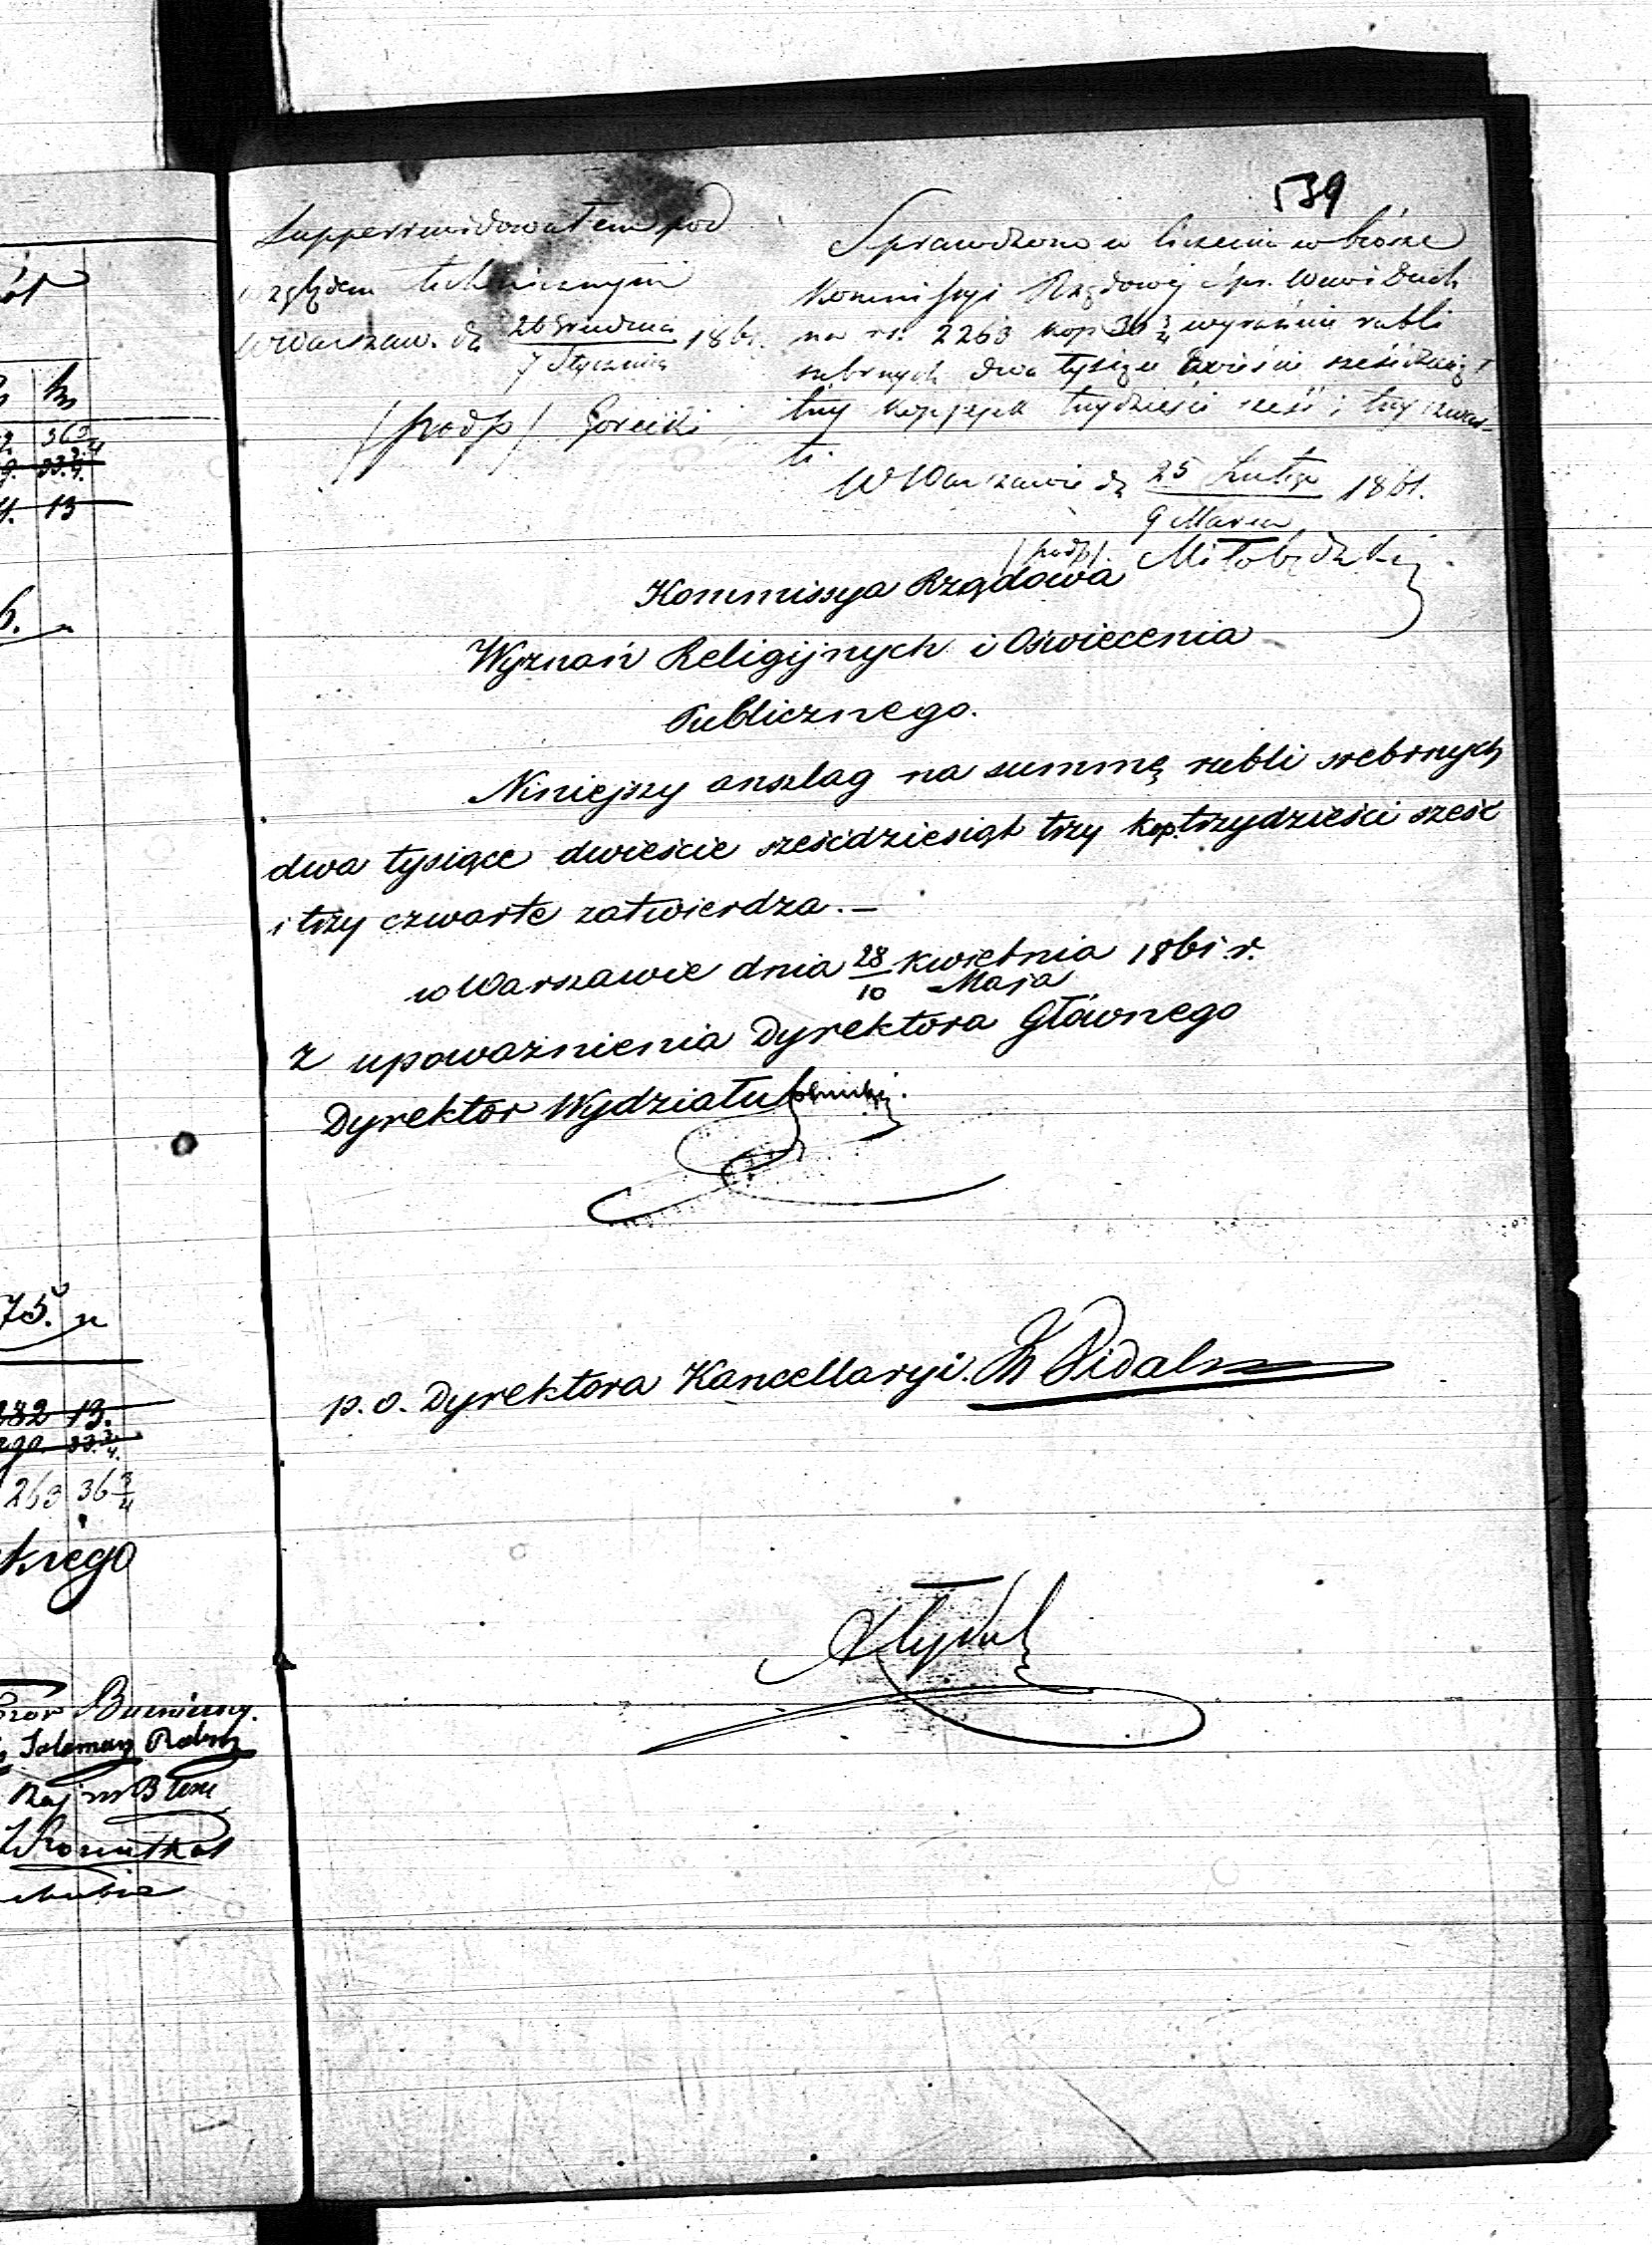 539
Supperrewidowałem pod
względem technicznym
w Warszaw. d. 26 Grudnia 186.
7 Stycznia
/podp/ Gorecki
Sprawdzono w liczeniu w biórze
Kommissyi Rządowéj Spr. Wew i Duch
na rs. 2263 kop 36 3/4 wyraźnie rubli
srebrnych dwa tysiące dwieście sześćdziesiąt
trzy kopiejek trzydzieści sześć i trzy czwar-
te.
W Warszawie d. 25 Lutego 1861.
9 Marca
/podp/. Miłobędzki
Kommissya Rządowa
Wyznań Religijnych i Oświecenia
Publicznego.
Niniejszy anszlag na summę rubli srebrnych
dwa tysiące dwieście sześćdziesiąt trzy kop. trzydzieści sześć
i trzy czwarte zatwierdza. —
w Warszawie dnia 28 Kwietnia 1861 r.
10 Maja
z upoważnienia Dyrektora Głównego
Dyrektor Wydziału
p. o. Dyrektora Kancellaryi.
36 3/4
33. 3/4.
13
6.
75. n
282 13.
290. 33. 3/4.
263 36 3/4
kiego